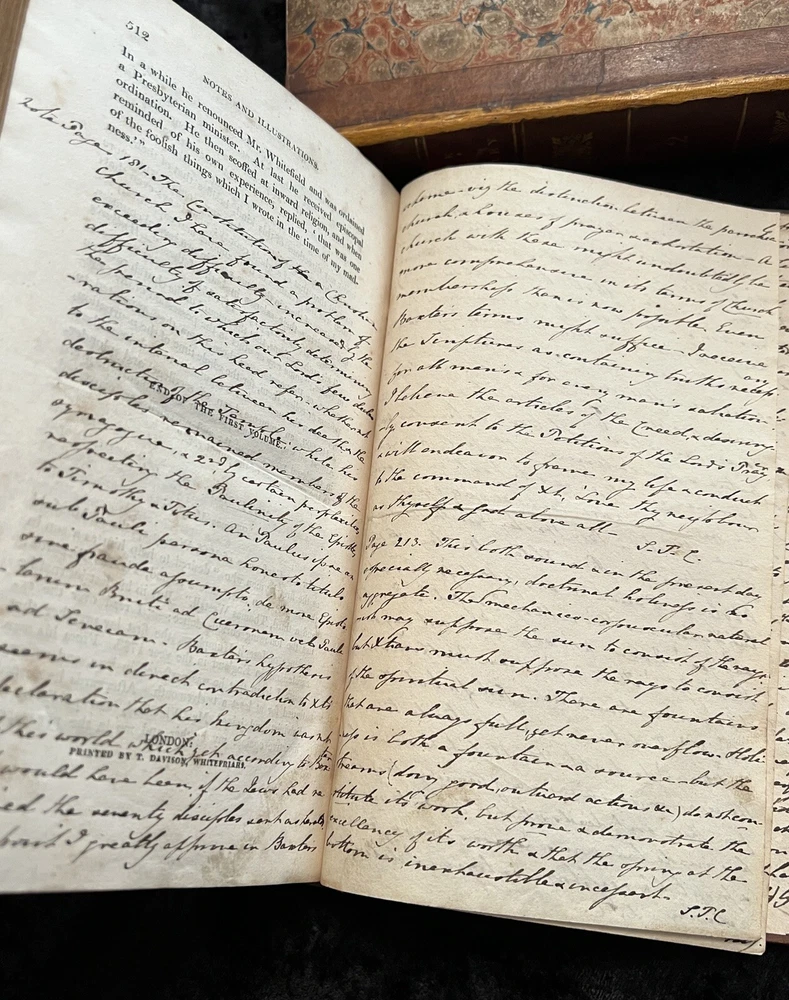 512
NOTES AND ILLUSTRATIONS.
In a while he renounced Mr. Whitefield and was ordained
a Presbyterian minister. At last he received episcopal
ordination. He then scoffed at inward religion, and when
reminded of his own experience, replied, 'that was one
of the foolish things which I wrote in the time of my mad-
ness.'"
Note Page 181. The Constitution of the a Christian
Church I have found a problem of
exceeding difficulty, increased by the
difficulty of satisfactorily determining
the period to which our Lord's few decla-
rations on this head refer, whether not
to the interval between his death & the
destruction of the Temple, while his
disciples remained members of the
END OF THE FIRST VOLUME.
Synagogue, & 2ndly certain perplexities
respecting the Paulinity of the Epistles
to Timothy & Titus. An Paulus ipse an
sub Pauli persona honesto titulo
sine fraude assumpto, de more Episto-
larum Bruti ad Ciceronem vel Pauli
ad Senecam. Baxter's hypothesis
seems in direct contradiction to Xt's
declaration that his kingdom was not
of this world, which yet according to
LONDON:
PRINTED BY T. DAVISON, WHITEFRIARS.
would have been, if the Jews had
the seventy disciples sent
I greatly approve in Baxter's
scheme—viz the distinction between the
church, & houses of prayer & exhortation—A
church with these might undoubtedly be
more comprehensive in its terms of Church
membership than is now possible. Even
Baxter's terms might suffice—I receive
the Scriptures as containing truths
for all men, & for every man's salvation
I believe the articles of the Creed, &
consent to the Petitions of the Lord's Prayer
& will endeavor to frame my life & conduct
to the command of Xt, 'Love thy neighbour
as thyself & God above all—S. T. C.
Page 213. This both sound & in the present day
especially necessary, doctrinal holiness is no
aggregate. The mechanico-corpuscular naturalist
may suppose the sun to consist of the rays
but Xtians must suppose the rays to consist
of the spiritual sun. There are fountains
that are always full, yet never overflow. Holi-
ness is both a fountain & a source—but the
streams (doing good, outward actions &c) do not con-
stitute its work, but prove & demonstrate the
excellency of its worth & that the spring at the
bottom is inexhaustible & incessant.
S. T. C